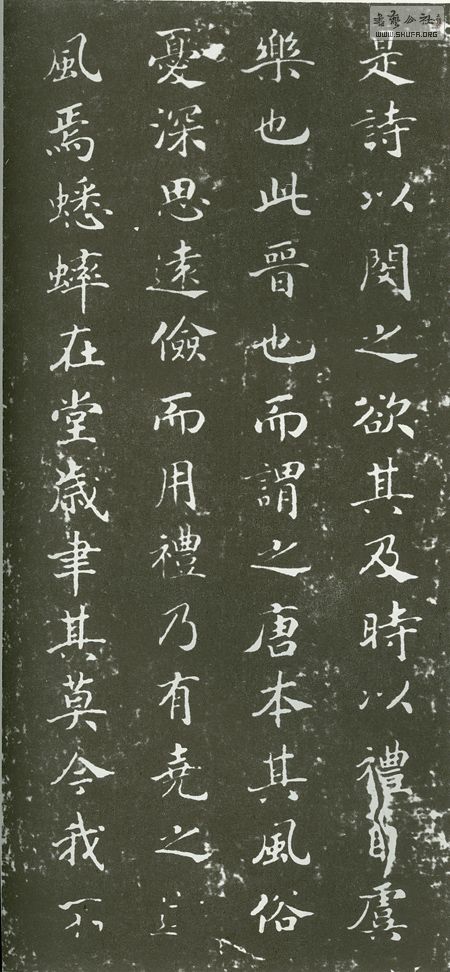 書藝公社
WWW.SHUFA.ORG
是詩以閔之欲其及時以禮自虞
樂也此晉也而謂之唐本其風俗
憂深思遠儉而用禮乃有堯之
風焉蟋蟀在堂歲聿其莫今我不